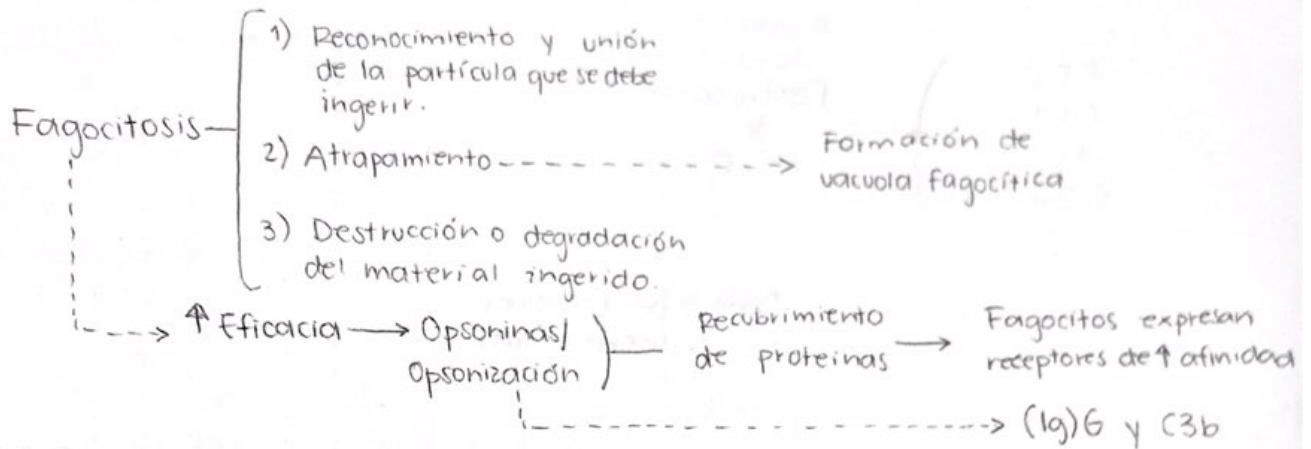 1) Reconocimiento y unión
de la partícula que se debe
ingerir.
Fagocitosis
2) Atrapamiento
Formación de
vacuola fagocítica
3) Destrucción o degradación
del material ingerido.
↑ Eficacia → Opsoninas/
Opsonización
Recubrimiento
de proteinas
→ Fagocitos expresan
receptores de ↑ afinidad
(Ig)G y C3b